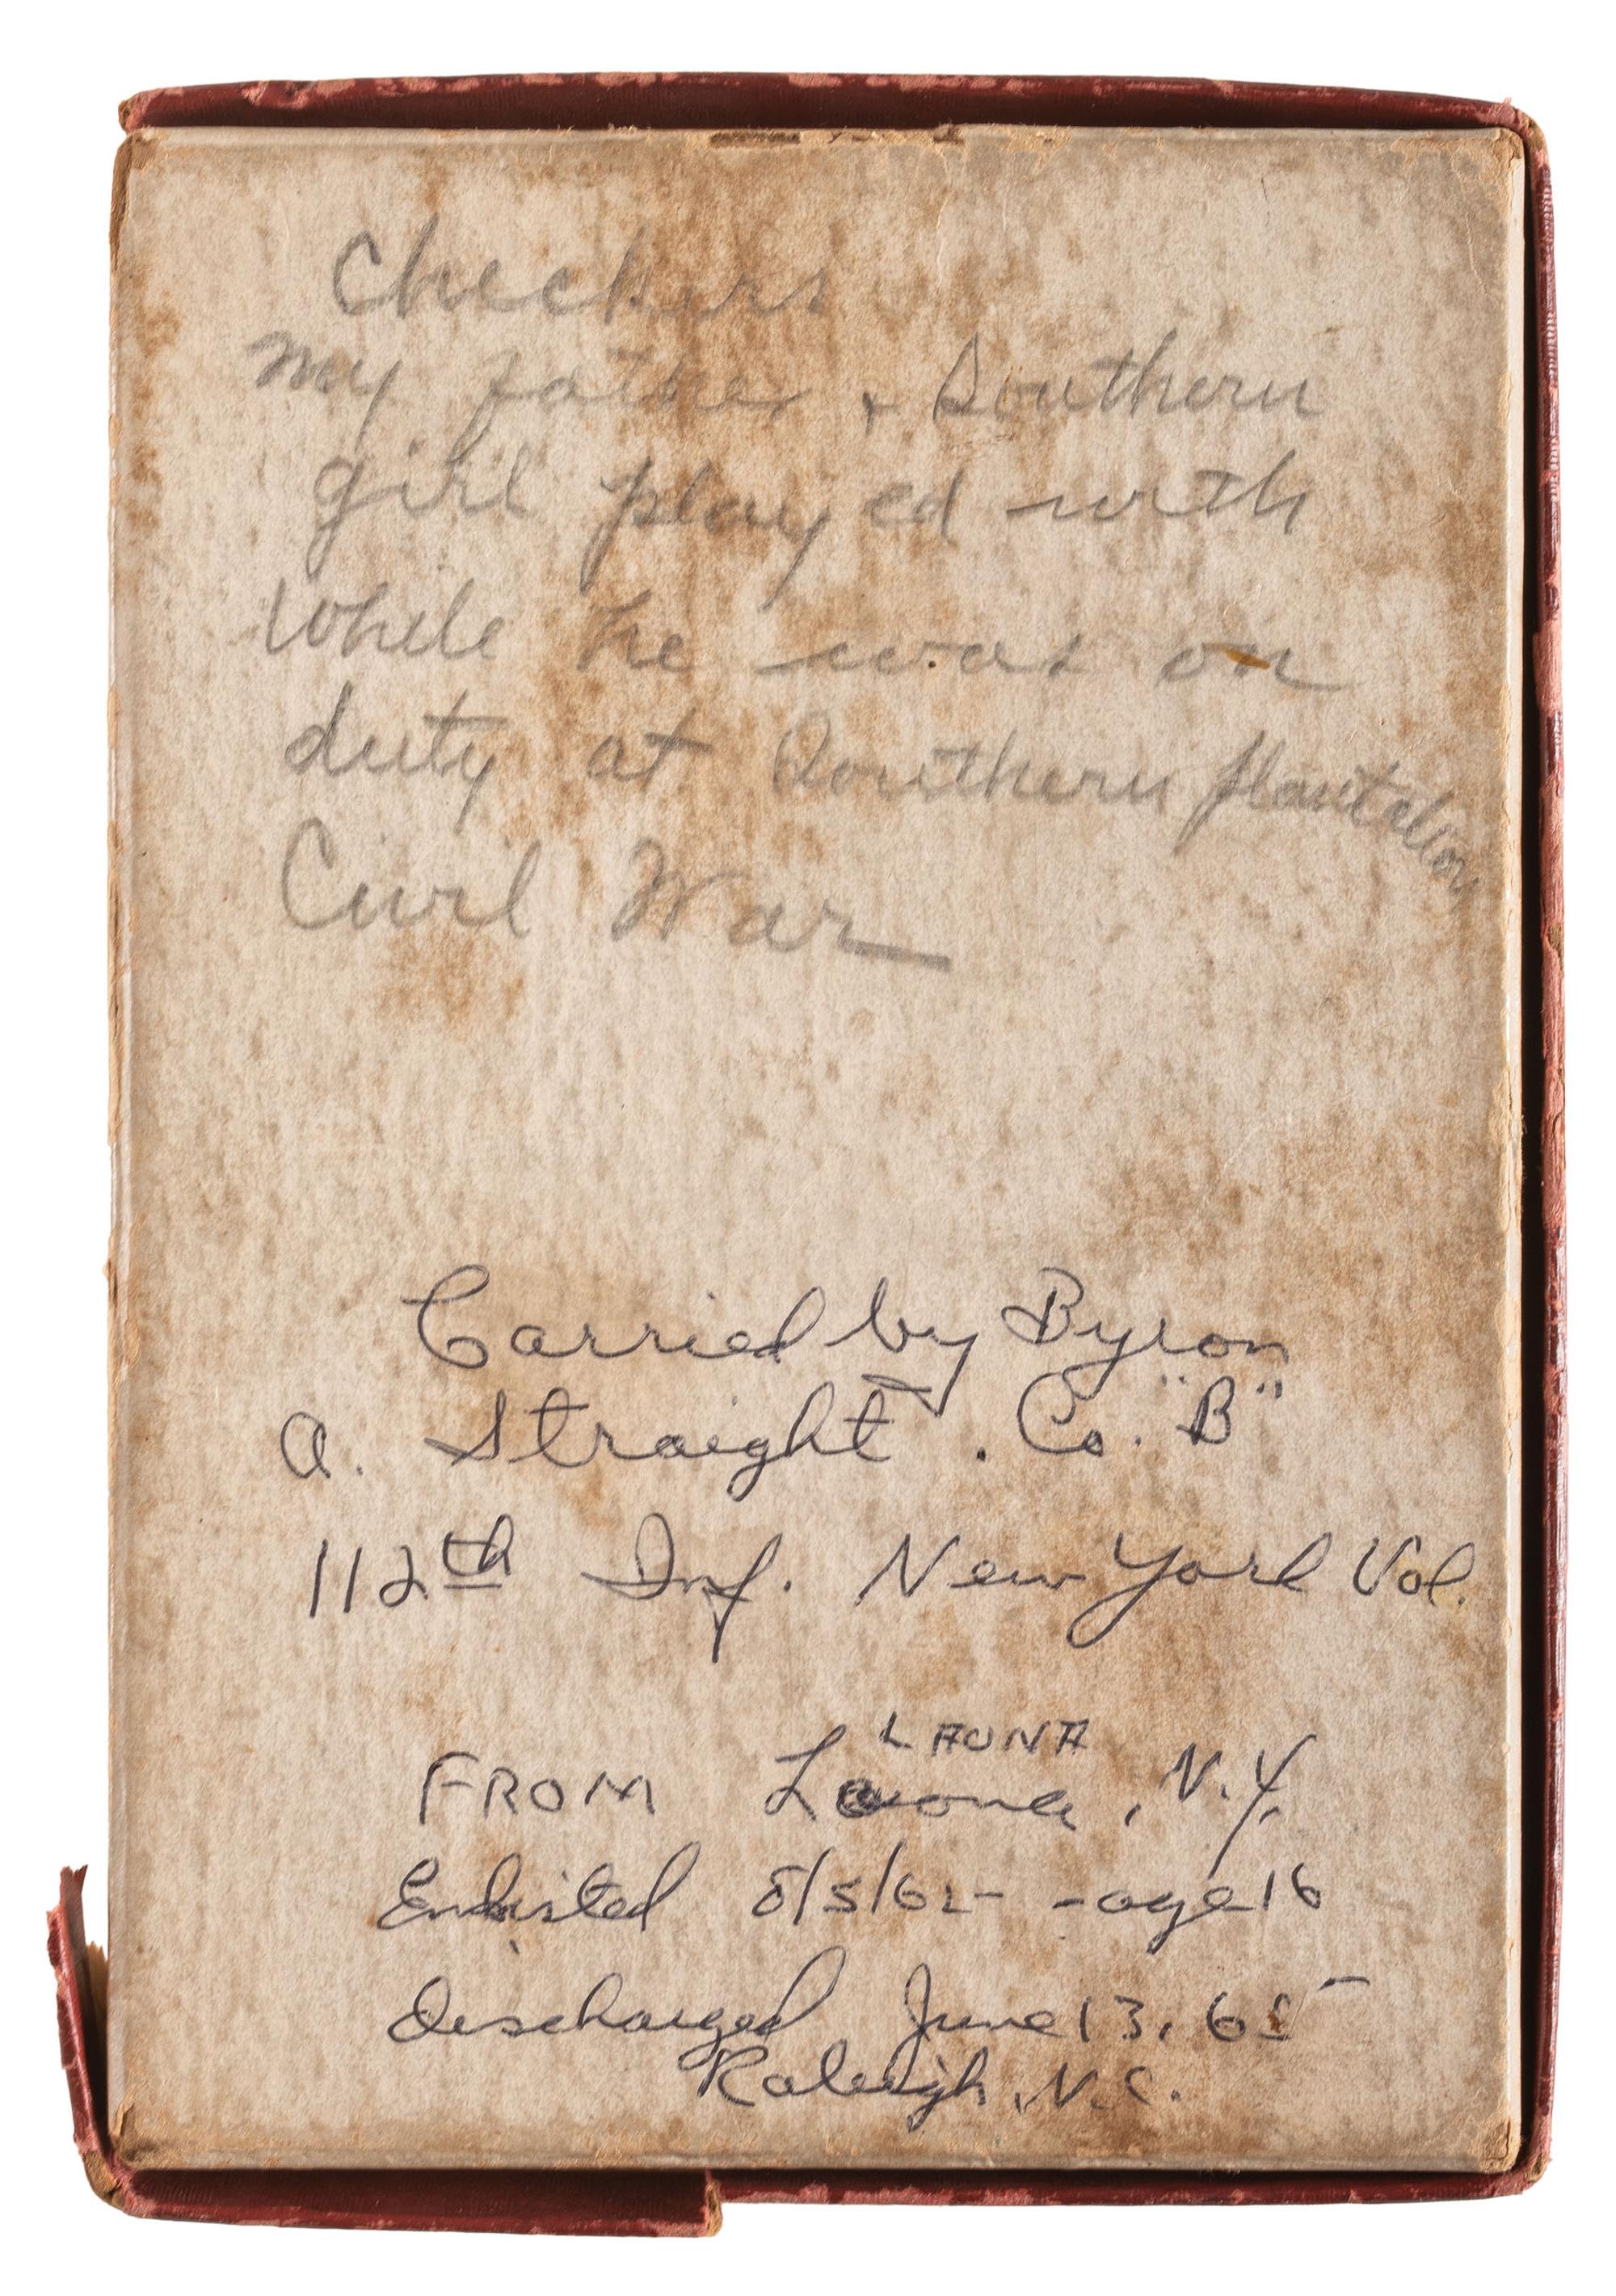 Checkers
my father + Southern
girl played with
while he was on
duty at Southern plantation
Civil War
Carried by Byron
A. Straight. Co. "B"
112th Inf. New York Vol.
LAONA
FROM Laona, N.Y.
Enlisted 8/5/62 - age 16
Discharged June 13, 65
Raleigh, N.C.